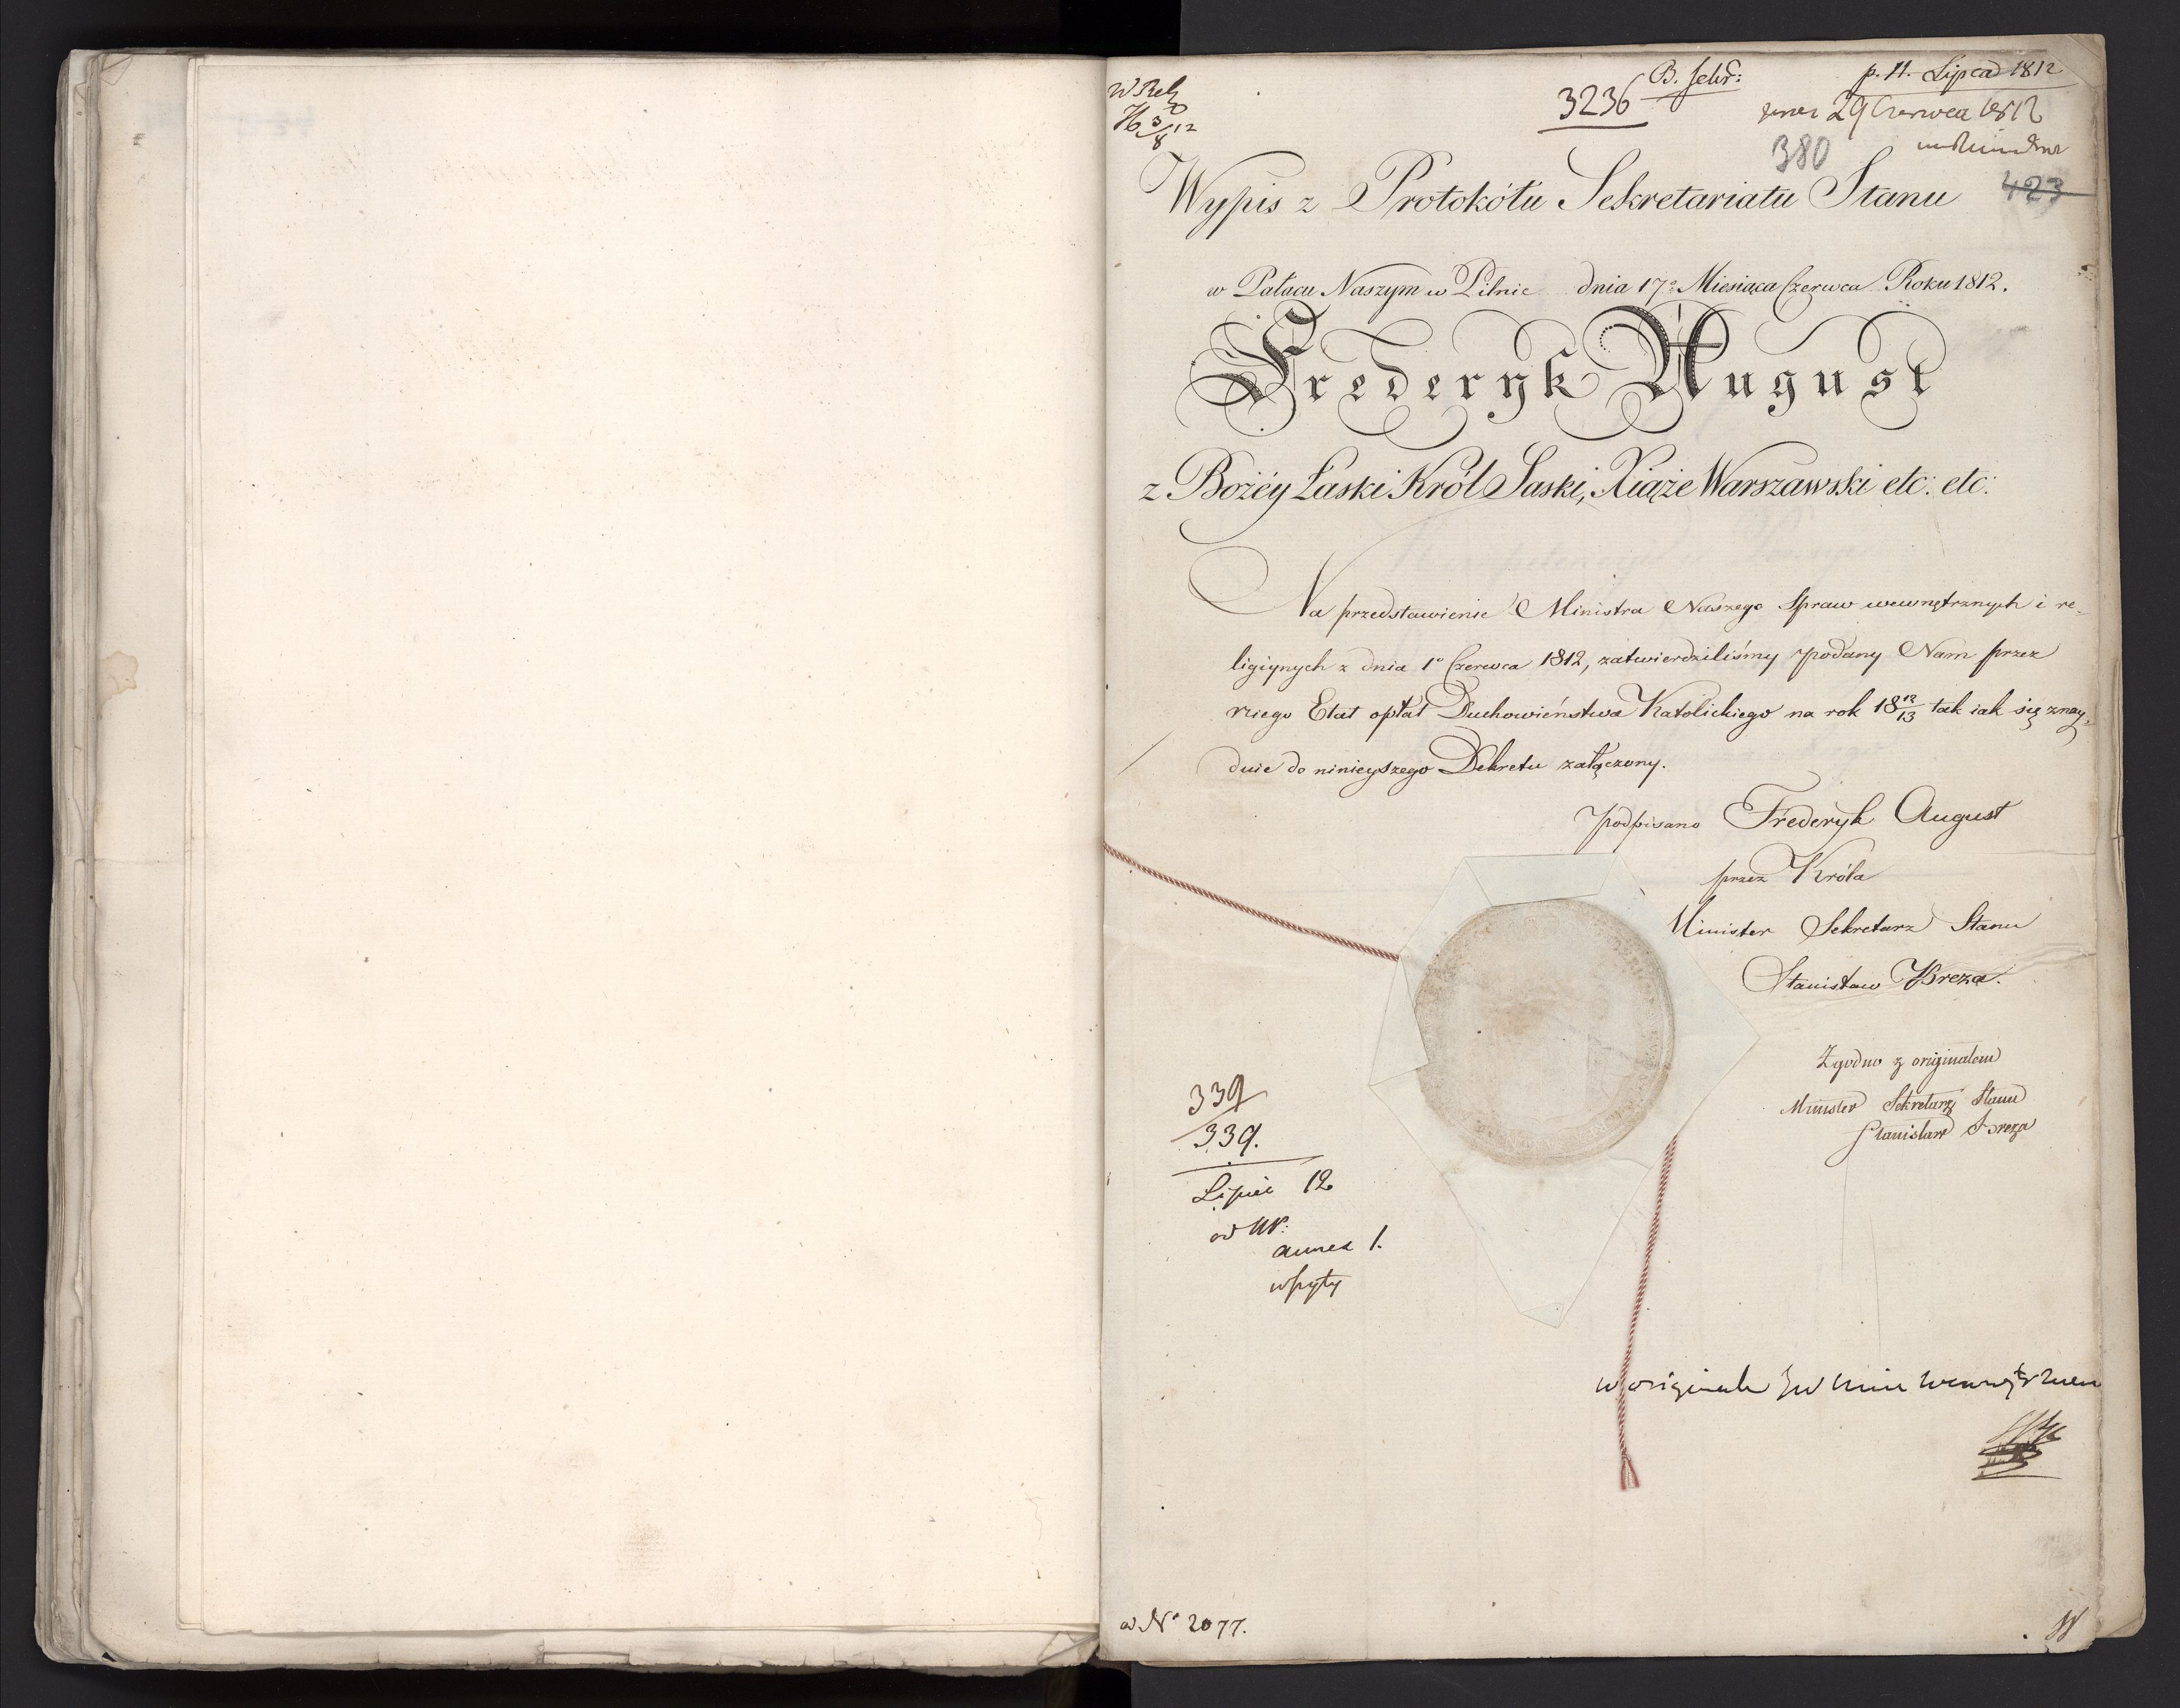 3236
B. Sekr:
p. 11. Lipca 1812
29 Czerwca 1812
380
423
Wypis z Protokółu Sekretariatu Stanu
w Pałacu Naszym w Pilnic dnia 17º Miesiąca Czerwca Roku 1812.
Frederyk August
z Bożéy Łaski Król Saski, Xiąże Warszawski etc: etc:
Na przedstawienie Ministra Naszego Spraw wewnętrznych i re-
ligiynych z dnia 1º Czerwca 1812, zatwierdziliśmy podany Nam przez
niego Etat opłat Duchowieństwa Katolickiego na rok 18 12/13 tak iak się znay-
duie do ninieyszego Dekretu załączony.
podpisano Frederyk August
przez Króla
Minister Sekretarz Stanu
Stanisław Breza.
Zgodno z originałem
Minister Sekretarz Stanu
Stanisław Breza
339
339.
Lipiec 12
annex 1.
w originale
ad Nº 2077.